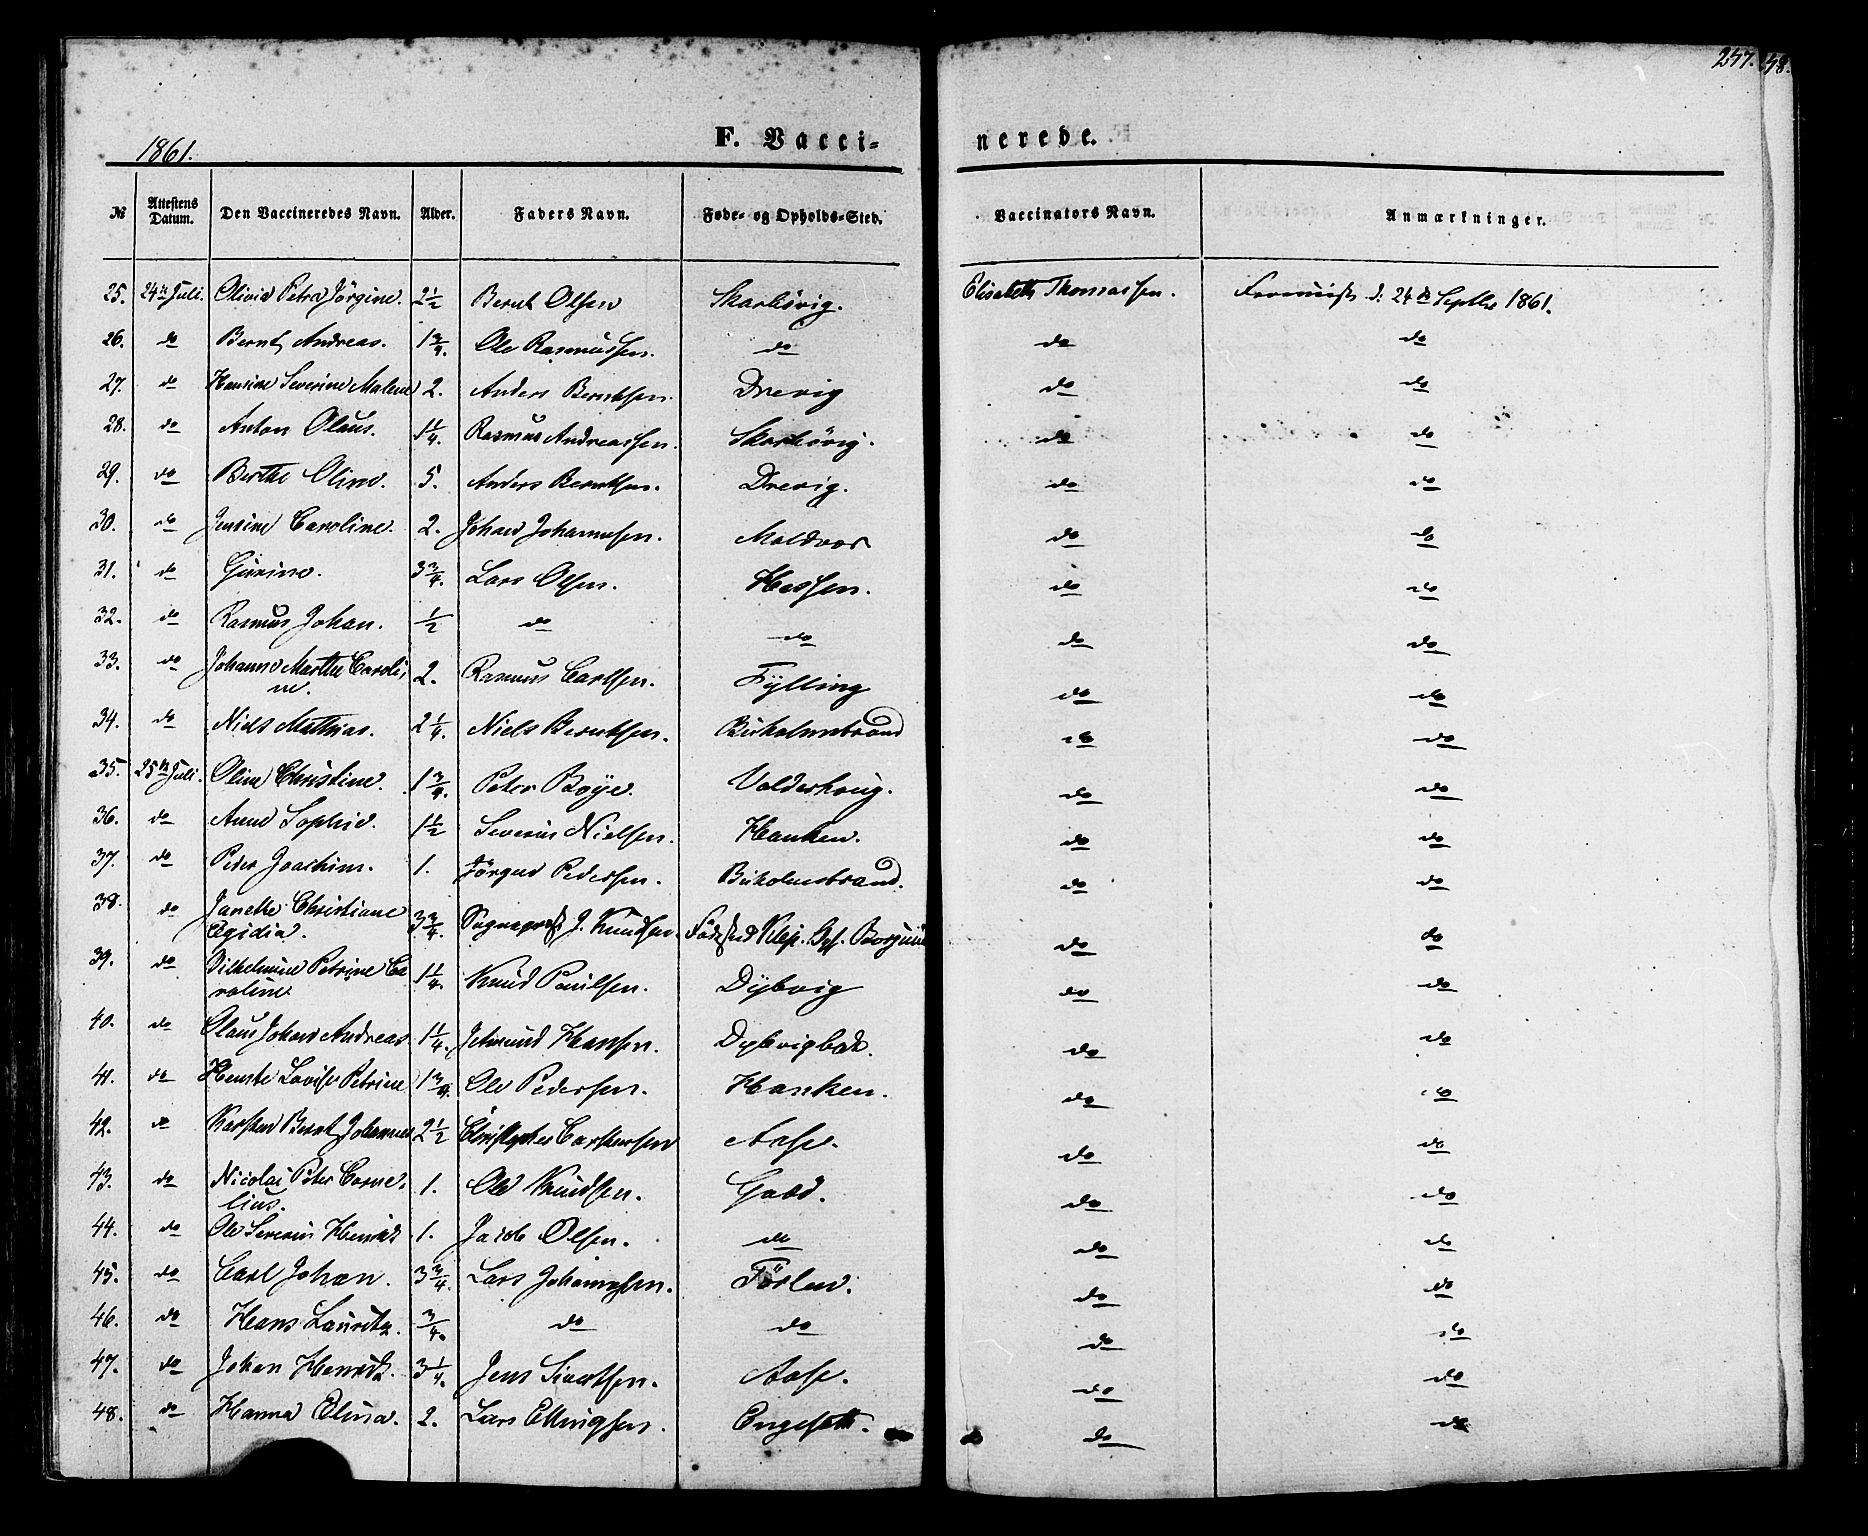 247. 48.
1861. F. Vacci- nerede.
№ Attestens Datum. Den Vaccineredes Navn. Alder. Faders Navn. Føde- og Opholds-Sted. Vaccinators Navn. Anmærkninger.
25. 24de Juli. Olivia Petra Jörgine. 2 1/2 Bernt Olsen Skarbövig. Elisabeth Thomassen. d: 24de Septbr 1861.
26. do Bernt Andreas. 1 3/4. Ole Rasmussen. do do do
27. do Hansine Severine Malene 2. Anders Berntsen. Drevig do do
28. do Anton Olaus. 1 1/4. Rasmus Andreassen. Skarbövig. do do
29. do Berthe Oline. 5. Anders Berntsen. Drevig. do do
30. do Jensine Caroline. 2. Johan Johannesen. Moldvor do do
31. do Gurine. 3 3/4. Lars Olsen. Hessen. do do
32. do Rasmus Johan. 1/2 do do do do
33. do Johanne Marthe Caroli-
ne. 2. Rasmus Carlsen. Fylling do do
34. do Niels Mathias. 2 1/4. Niels Berntsen. do do
35. 25de Juli. Oline Christine. 1 3/4. Peter Böye. Volderhoug. do do
36. do Anne Sophie. 1 1/2 Severin Nielsen. Hanken. do do
37. do Peder Joachim. 1. Jörgen Pedersen. do do
38. do Janette Christiane
Egidia. 3 3/4. Sognepræst J. Knudsen. Födested do do
39. do Vilhelmine Petrine Ca
roline. 1 1/4. Knud Paulsen. Dybvig do do
40. do Olaus Johan Andreas 1 1/4. Hansen. do do
41. do Lovise Petrine 1 3/4. Ole Pedersen. Hanken. do do
42. do Karsten Bernt Johannes 2 1/2 Christopher Carstensen Aase. do do
43. do Nicolai Peter Corne-
lius. 1. Ole Knudsen. Gaad. do do
44. do Ole Severin Henrik 1. Jacob Olsen. do do do
45. do Carl Johan. 3 3/4. Lars Johannesen. do do
46. do Hans Lauritz. 3/4. do do do do
47. do Johan Henrik. 3 1/4. Jens Sivertsen. Aase. do do
48. do Hanna Elina. 2. Lars Ellingsen. Engesett. do do